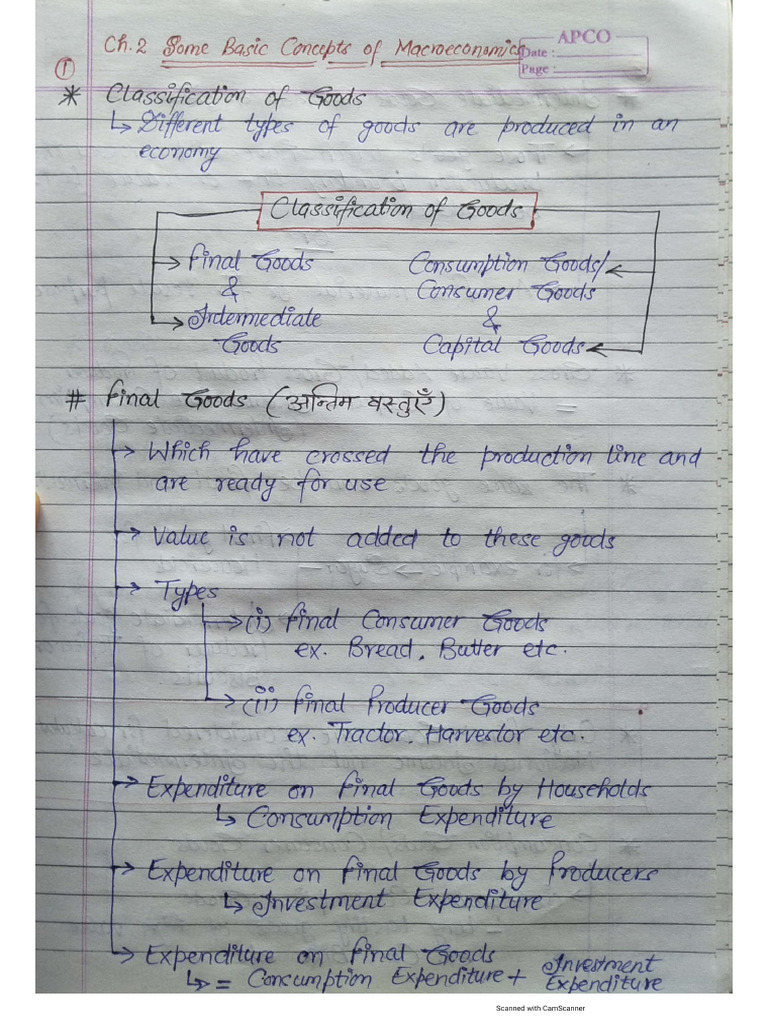 Ch.2 Some Basic Concepts of Macroeconomics
APCO
Date :
Page :
①
* Classification of Goods
↳ Different types of goods are produced in an
economy
Classification of Goods
→ Final Goods
&
→ Intermediate
Goods
Consumption Goods/
Consumer Goods
&
Capital Goods
# Final Goods (अन्तिम वस्तुएँ)
→ Which have crossed the production line and
are ready for use
→ Value is not added to these goods
→ Types
→ (i) Final Consumer Goods
ex. Bread, Butter etc.
→ (ii) Final Producer Goods
ex. Tractor, Harvestor etc.
→ Expenditure on Final Goods by Households
↳ Consumption Expenditure
→ Expenditure on Final Goods by Producers
↳ Investment Expenditure
→ Expenditure on Final Goods
↳ = Concumption Expenditure + Investment
Expenditure
Scanned with CamScanner